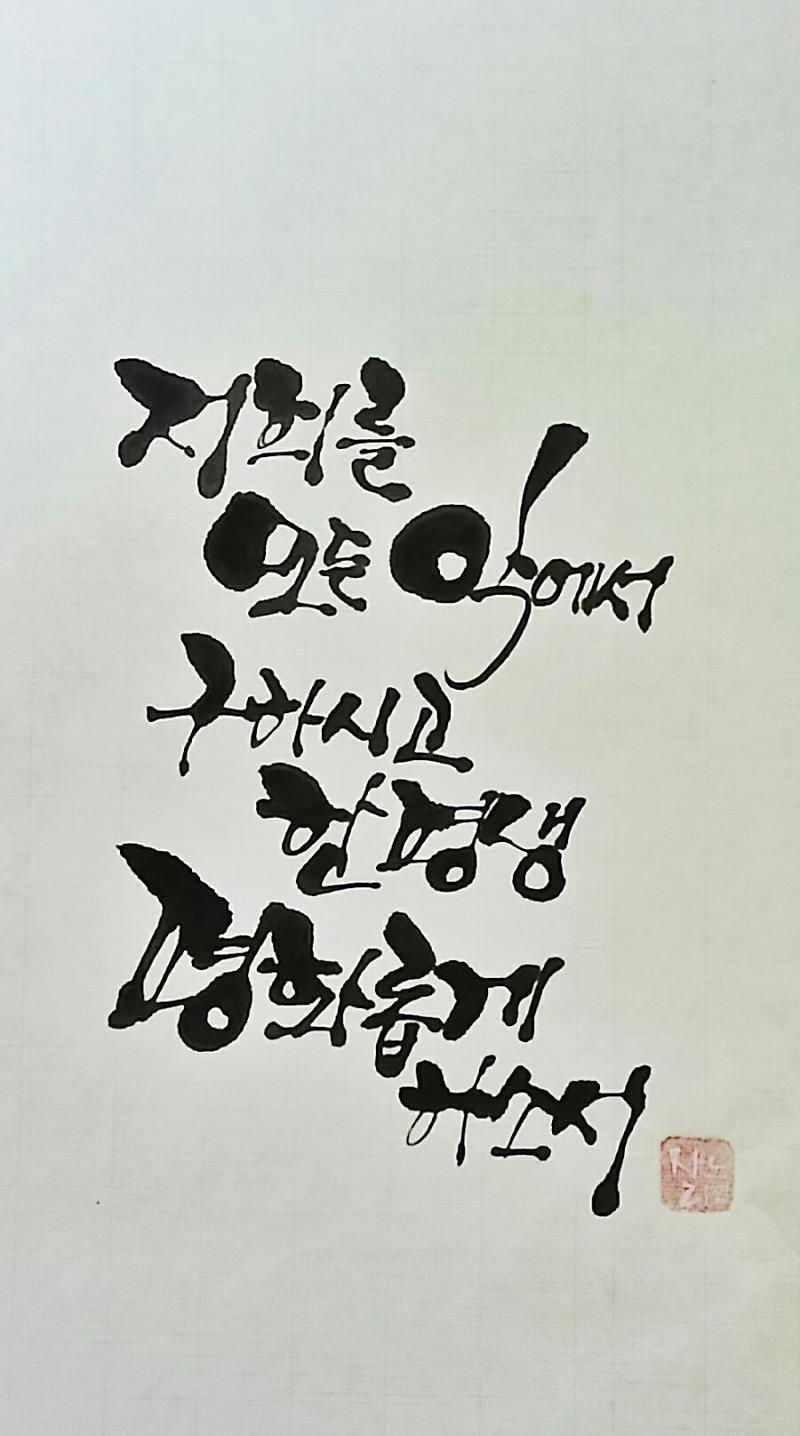 저희를
모든 악에서
구하시고
한평생
평화롭게
하소서